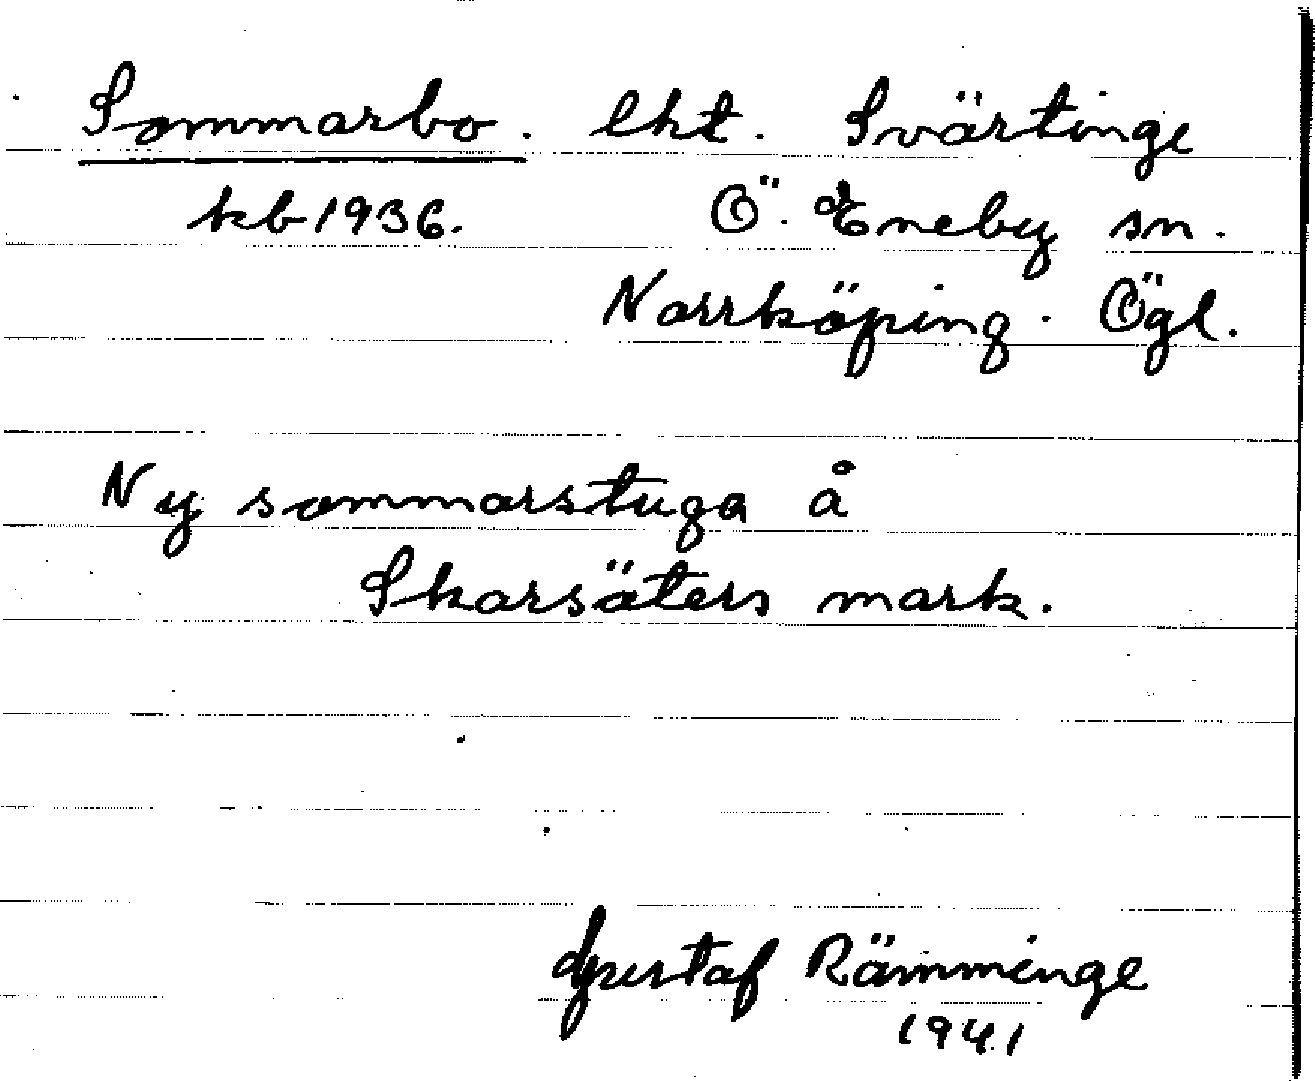 Sommarbo. lht. Svärtinge
kb 1936. Ö. Eneby sn.
Norrköping. Ögl.
Ny sommarstuga å
Skarsäters mark.
Gustaf Rämminge
1941